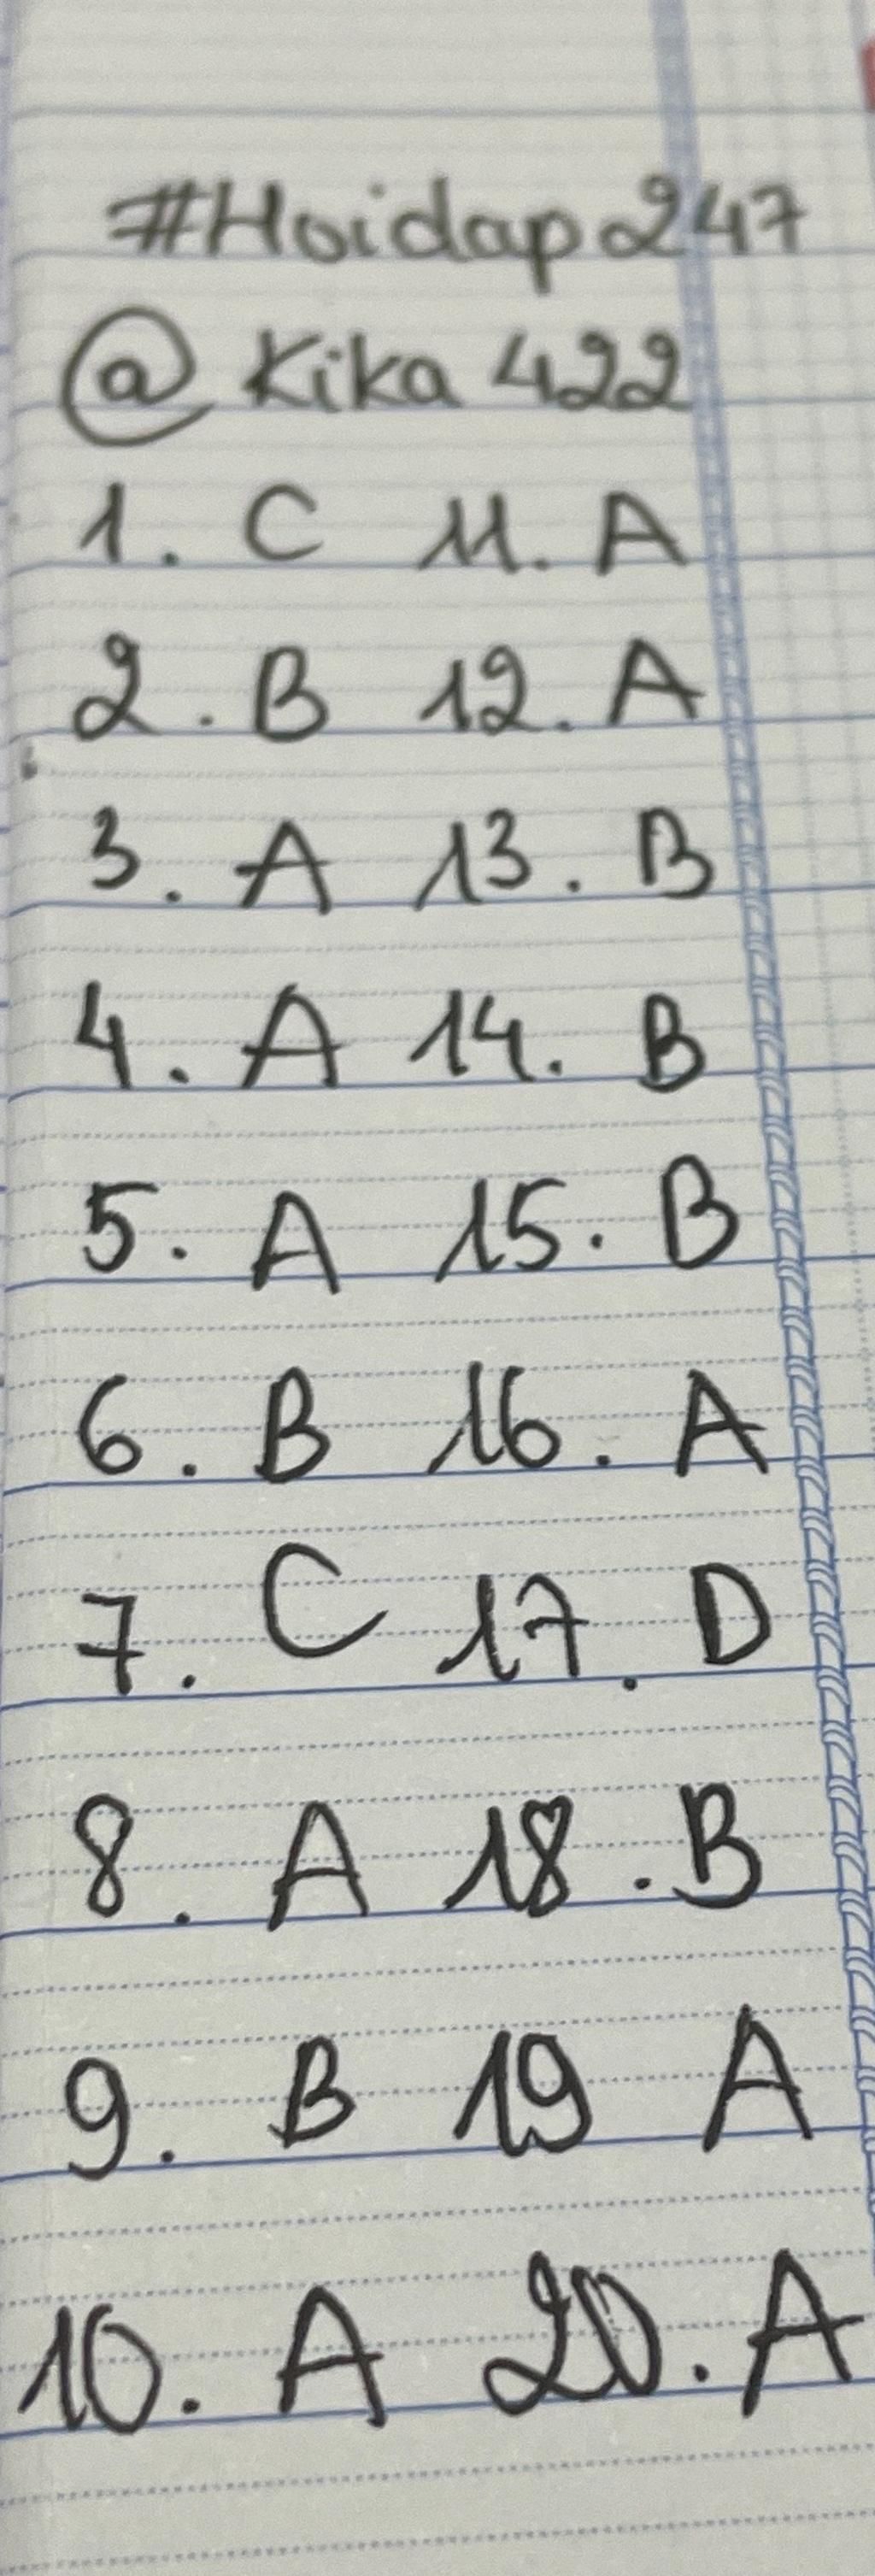 #Hoidap247
@Kika422
1. C 11. A
2. B 12. A
3. A 13. B
4. A 14. B
5. A 15. B
6. B 16. A
7. C 17. D
8. A 18. B
9. B 19 A
10. A 20. A